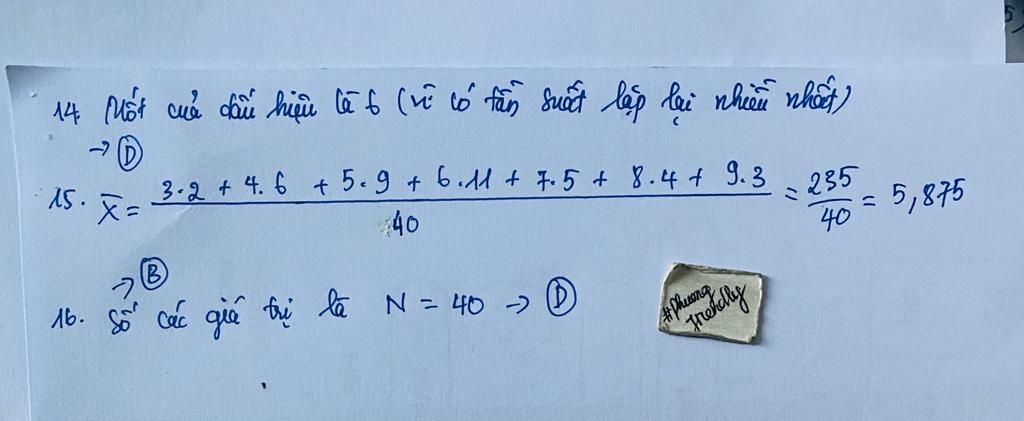 14. Mốt của dấu hiệu là 6 (vì có tần suất lặp lại nhiều nhất)
→ D
15. X̄ = (3.2 + 4.6 + 5.9 + 6.11 + 7.5 + 8.4 + 9.3)/40 = 235/40 = 5,875
→ B
16. Số các giá trị là N = 40 → D
#phuong
trendly
5)